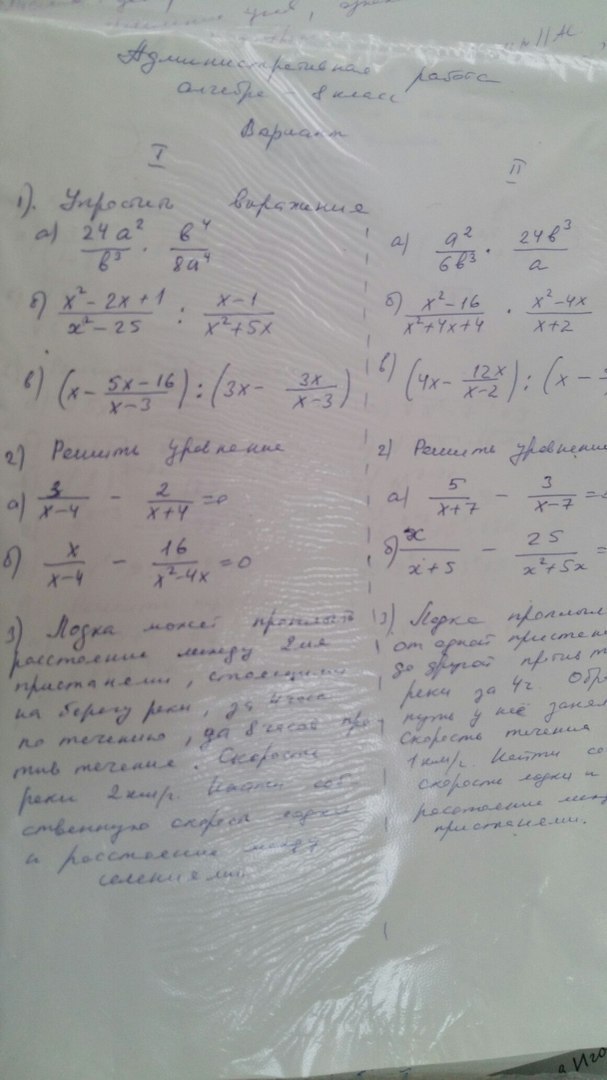 Административная работа
алгебра - 8 класс
Вариант
I
1). Упростить выражения
а) 24a²/b³ · b⁴/8a⁴
б) x²-2x+1/x²-25 : x-1/x²+5x
в) (x - 5x-16/x-3) : (3x - 3x/x-3)
2) Решить уравнение
а) 3/x-4 - 2/x+4 = 0
б) x/x-4 - 16/x²-4x = 0
3) Лодка может проплыть
расстояние между 2мя
пристанями, стоящими
на берегу реки, за 4 часа
по течению, за 8 часов про
тив течения. Скорость
реки 2 км/г. Найти соб-
ственную скорость лодки
и расстояние между
селениями
II
а) a²/6b³ · 24b³/a
б) x²-16/x²+4x+4 · x²-4x/x+2
в) (4x - 12x/x-2) : (x -
2) Решить уравнение
а) 5/x+7 - 3/x-7 =
б) x/x+5 - 25/x²+5x =
3) Лодка проплыл
от одной пристани
до другой против т
реки за 4г. Обра
путь у неё занял
Скорость течения
1 км/г. Найти со
скорость лодки и
расстояние меж
пристанями.